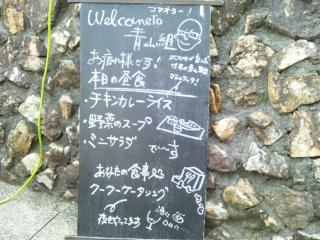 コマネチー！
Welcome To
青山組
お疲れ様です！
本日の昼食
・チキンカレーライス
・野菜のスープ
・ミニサラダ
で〜す
あなたの食事処
クークーケータリング
夜もやってます